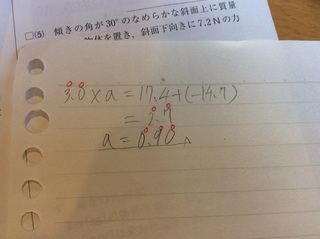 □(5) 傾きの角が30°のなめらかな斜面上に質量
物体を置き、斜面下向きに7.2Nの力
3.0×a=17.4+(-14.7)
=2.7
a=0.90